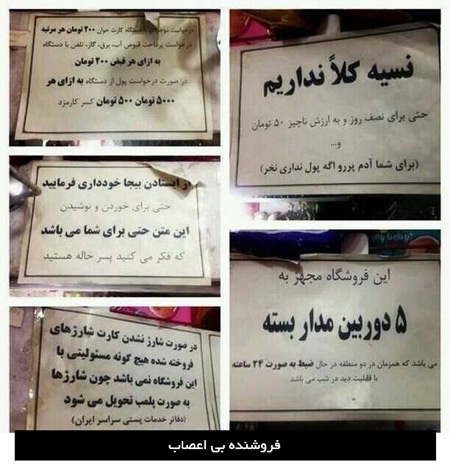 درخواست موجودی با دستگاه کارت خوان ۲۰۰ تومان هر مرتبه
درخواست پرداخت قبوض آب، برق، گاز، تلفن با دستگاه
به ازای هر قبض ۲۰۰ تومان
در صورت درخواست پول از دستگاه به ازای هر
۵۰۰۰ تومان ۵۰۰ تومان کسر کارمزد
نسیه کلاً نداریم
حتی برای نصف روز و به ارزش ناچیز ۵۰ تومان
و...
(برای شما آدم پررو اگه پول نداری نخر)
از ایستادن بیجا خودداری فرمایید
حتی برای خوردن و نوشیدن
این متن حتی برای شما می باشد
که فکر می کنید پسر خاله هستید
این فروشگاه مجهز به
۵ دوربین مدار بسته
می باشد که همزمان در دو منطقه در حال ضبط به صورت ۲۴ ساعته
با قابلیت دید در شب می باشد
در صورت شارژ نشدن کارت شارژهای
فروخته شده هیچ گونه مسئولیتی با
این فروشگاه نمی باشد چون شارژها
به صورت پلمپ تحویل می شود
(دفاتر خدمات پستی سراسر ایران)
فروشنده بی اعصاب